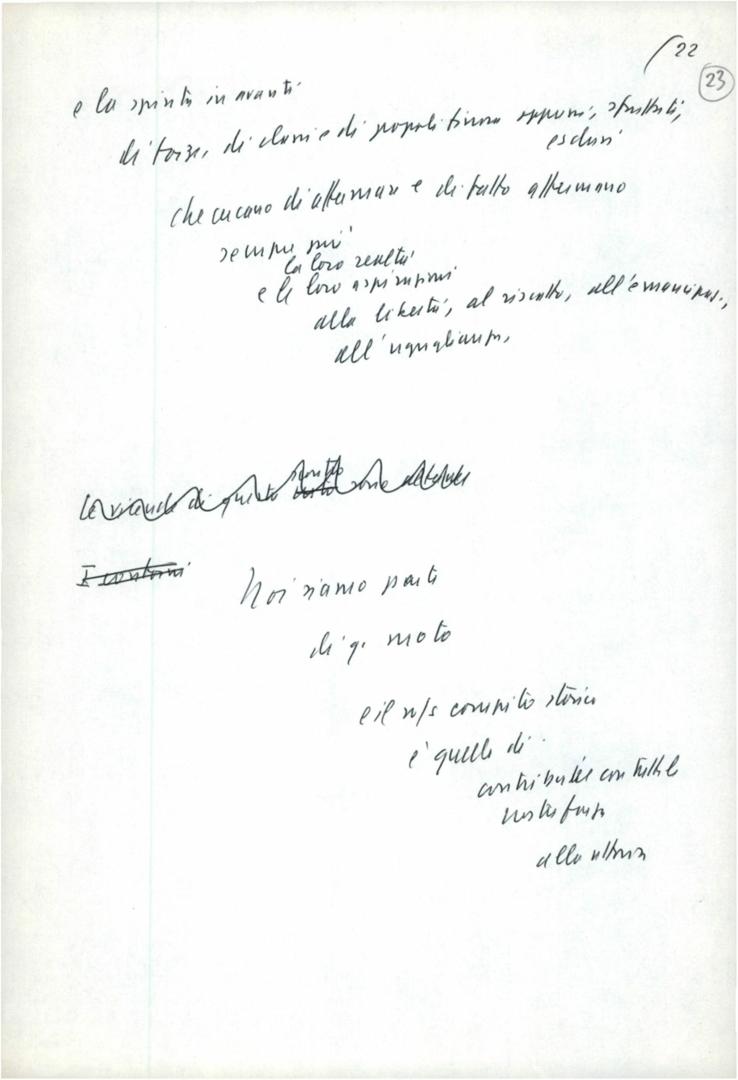 22
23
e la spinta in avanti
di forze, di classi e di popoli finora oppressi, sfruttati,
esclusi
che cercano di affermare e di fatto affermano
sempre più
la loro realtà
e le loro aspirazioni
alla libertà, al riscatto, all'emancipaz.,
all'uguaglianza,
Le vicende di questo
I contorni
Noi siamo parte
di q. moto
e il n/s compito storico
è quello di
contribuire con tutte le
nostre forze
alla